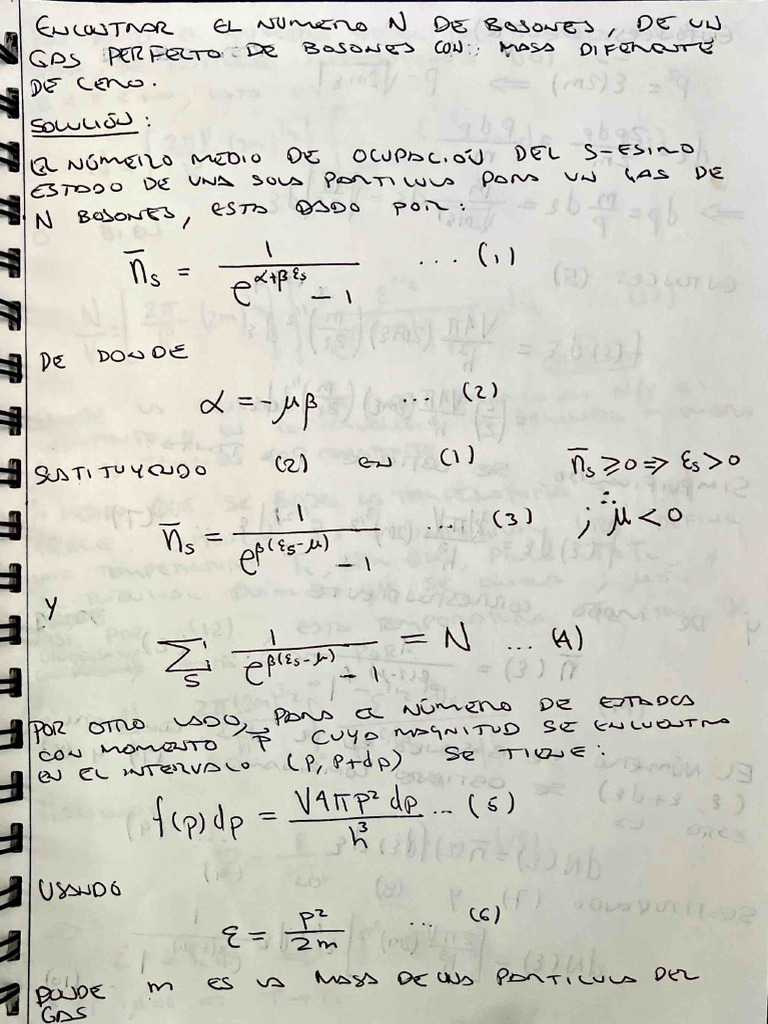 ENCONTRAR EL NÚMERO N DE BOSONES, DE UN
GAS PERFECTO DE BOSONES CON: MASA DIFERENTE
DE CERO.
SOLUCIÓN:
EL NÚMERO MEDIO DE OCUPACIÓN DEL S-ESIMO
ESTADO DE UNA SOLA PARTICULA PARA UN GAS DE
N BOSONES, ESTA DADO POR:
n̄s = 1 / (e^(α+βεs) - 1) ... (1)
DE DONDE
α = -μβ ... (2)
SUSTITUYENDO (2) EN (1) n̄s ≥ 0 ⇒ εs > 0
n̄s = 1 / (e^(β(εs-μ)) - 1) ... (3) ; ∴ μ < 0
Y
Σs 1 / (e^(β(εs-μ)) - 1) = N ... (4)
POR OTRO LADO, PARA EL NÚMERO DE ESTADOS
CON MOMENTO p⃗ CUYA MAGNITUD SE ENCUENTRA
EN EL INTERVALO (p, p+dp) SE TIENE:
f(p)dp = V4πp² dp / h³ ... (5)
USANDO
ε = p² / 2m ... (6)
DONDE m ES LA MASA DE UNA PARTICULA DEL
GAS